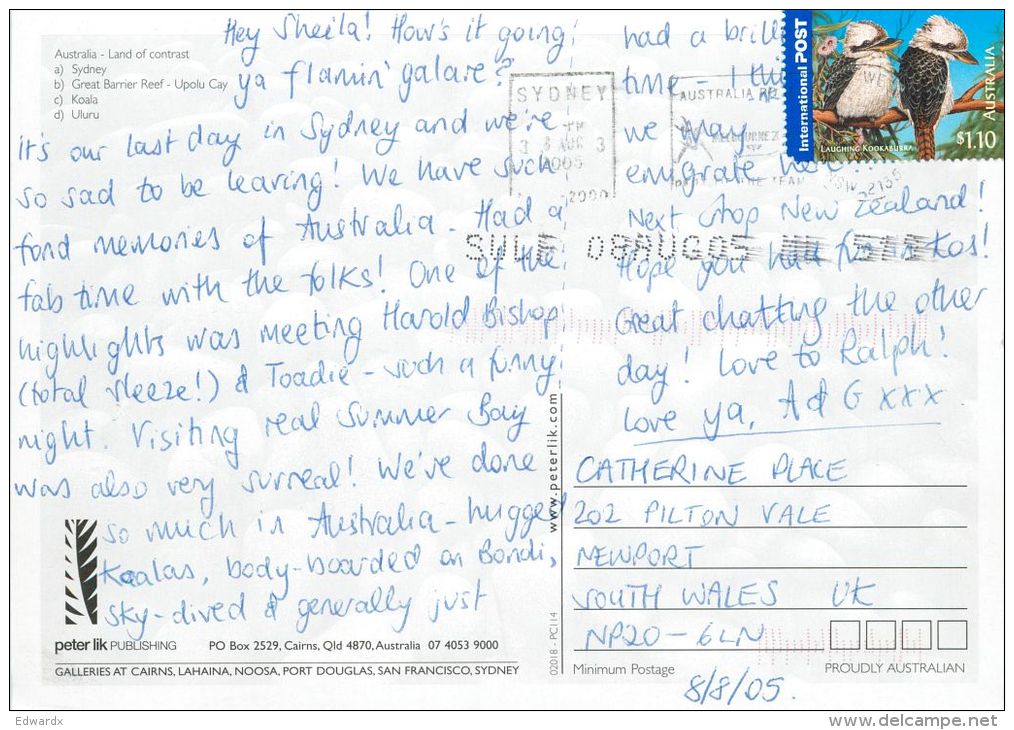 Australia - Land of contrast
a) Sydney
b) Great Barrier Reef - Upolu Cay
c) Koala
d) Uluru
Hey Sheila! How's it going
ya flamin' galare?
it's our last day in Sydney and we're
so sad to be leaving! We have such
fond memories of Australia. Had a
fab time with the folks! One of the
highlights was meeting Harold Bishop
(total sleeze!) & Toadie - such a funny
night. Visiting real Summer Bay
was also very surreal! We've done
so much in Australia - hugged
Koalas, body-boarded on Bondi,
sky-dived & generally just
had a brill
time - I
we may
emigrate here...
Next stop New Zealand!
Hope you had fun in Kos!
Great chatting the other
day! Love to Ralph!
Love ya, A & G xxx
CATHERINE PLACE
202 PILTON VALE
NEWPORT
SOUTH WALES UK
NP20-6LN
8/8/05.
International POST
AUSTRALIA
LAUGHING KOOKABURRA
$1.10
SYDNEY
2005
2000
AUSTRALIA
08AUG05
www.peterlik.com
02018 - PC114
peter lik PUBLISHING
PO Box 2529, Cairns, Qld 4870, Australia 07 4053 9000
GALLERIES AT CAIRNS, LAHAINA, NOOSA, PORT DOUGLAS, SAN FRANCISCO, SYDNEY
Minimum Postage
PROUDLY AUSTRALIAN
Edwardx
delcampe.net